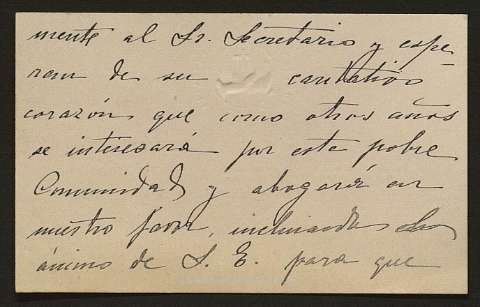 mente al Sr. Secretario y espe-
ran de su caritativo
corazón que como otros años
se interesará por esta pobre
Comunidad y abogará en
nuestro favor, inclinando el
ánimo de S. E. para que